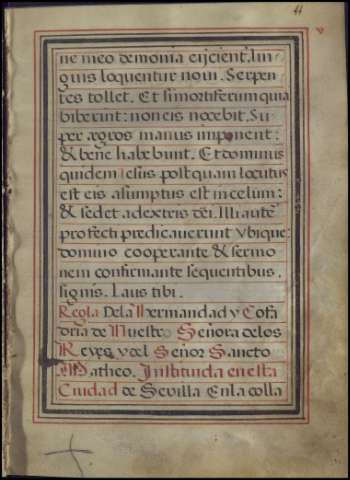 44
ne meo demonia eijcient. Lin
guis loquentur noui. Serpen
tes tollet. Et si mortiferum quia
biberint: non eis nocebit. Su
per ægros manus imponent:
& bene habebunt. Et dominus
quidem iesus postquam locutus
est eis asumptus est in celum:
& sedet adextris dei. Illi autē
profecti predicauerunt vbique:
domino cooperante & sermo
nem confirmante sequentibus.
signis. Laus tibi.
Regla Dela Hermandad y Cofa
dria de Nuestra Señora delos
Reyes y del Señor Sancto
Matheo. Instituida en esta
Ciudad de Sevilla Enla colla